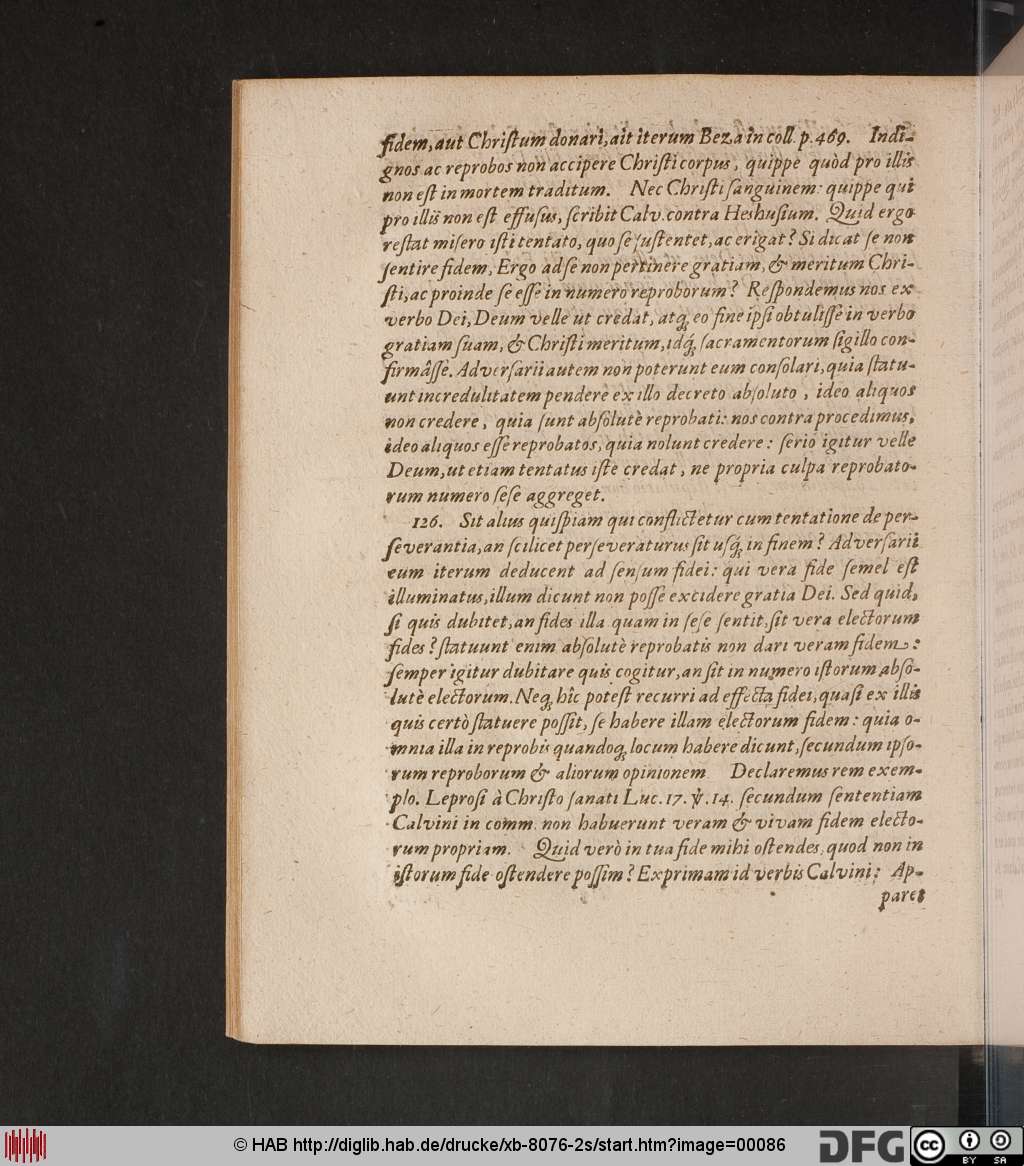 fidem, aut Chriſtum donari, ait iterum Beza in coll. p. 469. Indi-
gnos ac reprobos non accipere Chriſti corpus, quippe quòd pro illis
non eſt in mortem traditum. Nec Chriſti ſanguinem: quippe qui
pro illis non eſt effuſus, ſcribit Calv. contra Heshuſium. Quid ergo
reſtat miſero iſti tentato, quo ſe ſuſtentet, ac erigat? Si dicat ſe non
ſentire fidem, Ergo ad ſe non pertinere gratiam, & meritum Chri-
ſti, ac proinde ſe eſſe in numero reproborum? Reſpondemus nos ex
verbo Dei, Deum velle ut credat, atq; eo fine ipſi obtuliſſe in verbo
gratiam ſuam, & Chriſti meritum, idq́; ſacramentorum ſigillo con-
firmâſſe. Adverſarii autem non poterunt eum conſolari, quia ſtatu-
unt incredulitatem pendere ex illo decreto abſoluto, ideo aliquos
non credere, quia ſunt abſolutè reprobati: nos contra procedimus,
ideo aliquos eſſe reprobatos, quia nolunt credere: ſerio igitur velle
Deum, ut etiam tentatus iſte credat, ne propria culpa reprobato-
rum numero ſeſe aggreget.
126. Sit alius quiſpiam qui conflictetur cum tentatione de per-
ſeverantia, an ſcilicet perſeveraturus ſit uſq́; in finem? Adverſarii
eum iterum deducent ad ſenſum fidei: qui vera fide ſemel eſt
illuminatus, illum dicunt non poſſe excidere gratia Dei. Sed quid,
ſi quis dubitet, an fides illa quam in ſeſe ſentit, ſit vera electorum
fides? ſtatuunt enim abſolutè reprobatis non dari veram fidem:
ſemper igitur dubitare quis cogitur, an ſit in numero iſtorum abſo-
lutè electorum. Neq; hîc poteſt recurri ad effecta fidei, quaſi ex illis
quis certò ſtatuere poſſit, ſe habere illam electorum fidem: quia o-
mnia illa in reprobis quandoq; locum habere dicunt, ſecundum ipſo-
rum reproborum & aliorum opinionem. Declaremus rem exem-
plo. Leproſi à Chriſto ſanati Luc. 17. ℣. 14. ſecundum ſententiam
Calvini in comm. non habuerunt veram & vivam fidem electo-
rum propriam. Quid verò in tua fide mihi oſtendes, quod non in
iſtorum fide oſtendere poſſim? Exprimam id verbis Calvini: Ap-
paret
© HAB http://diglib.hab.de/drucke/xb-8076-2s/start.htm?image=00086
DFG
cc BY SA